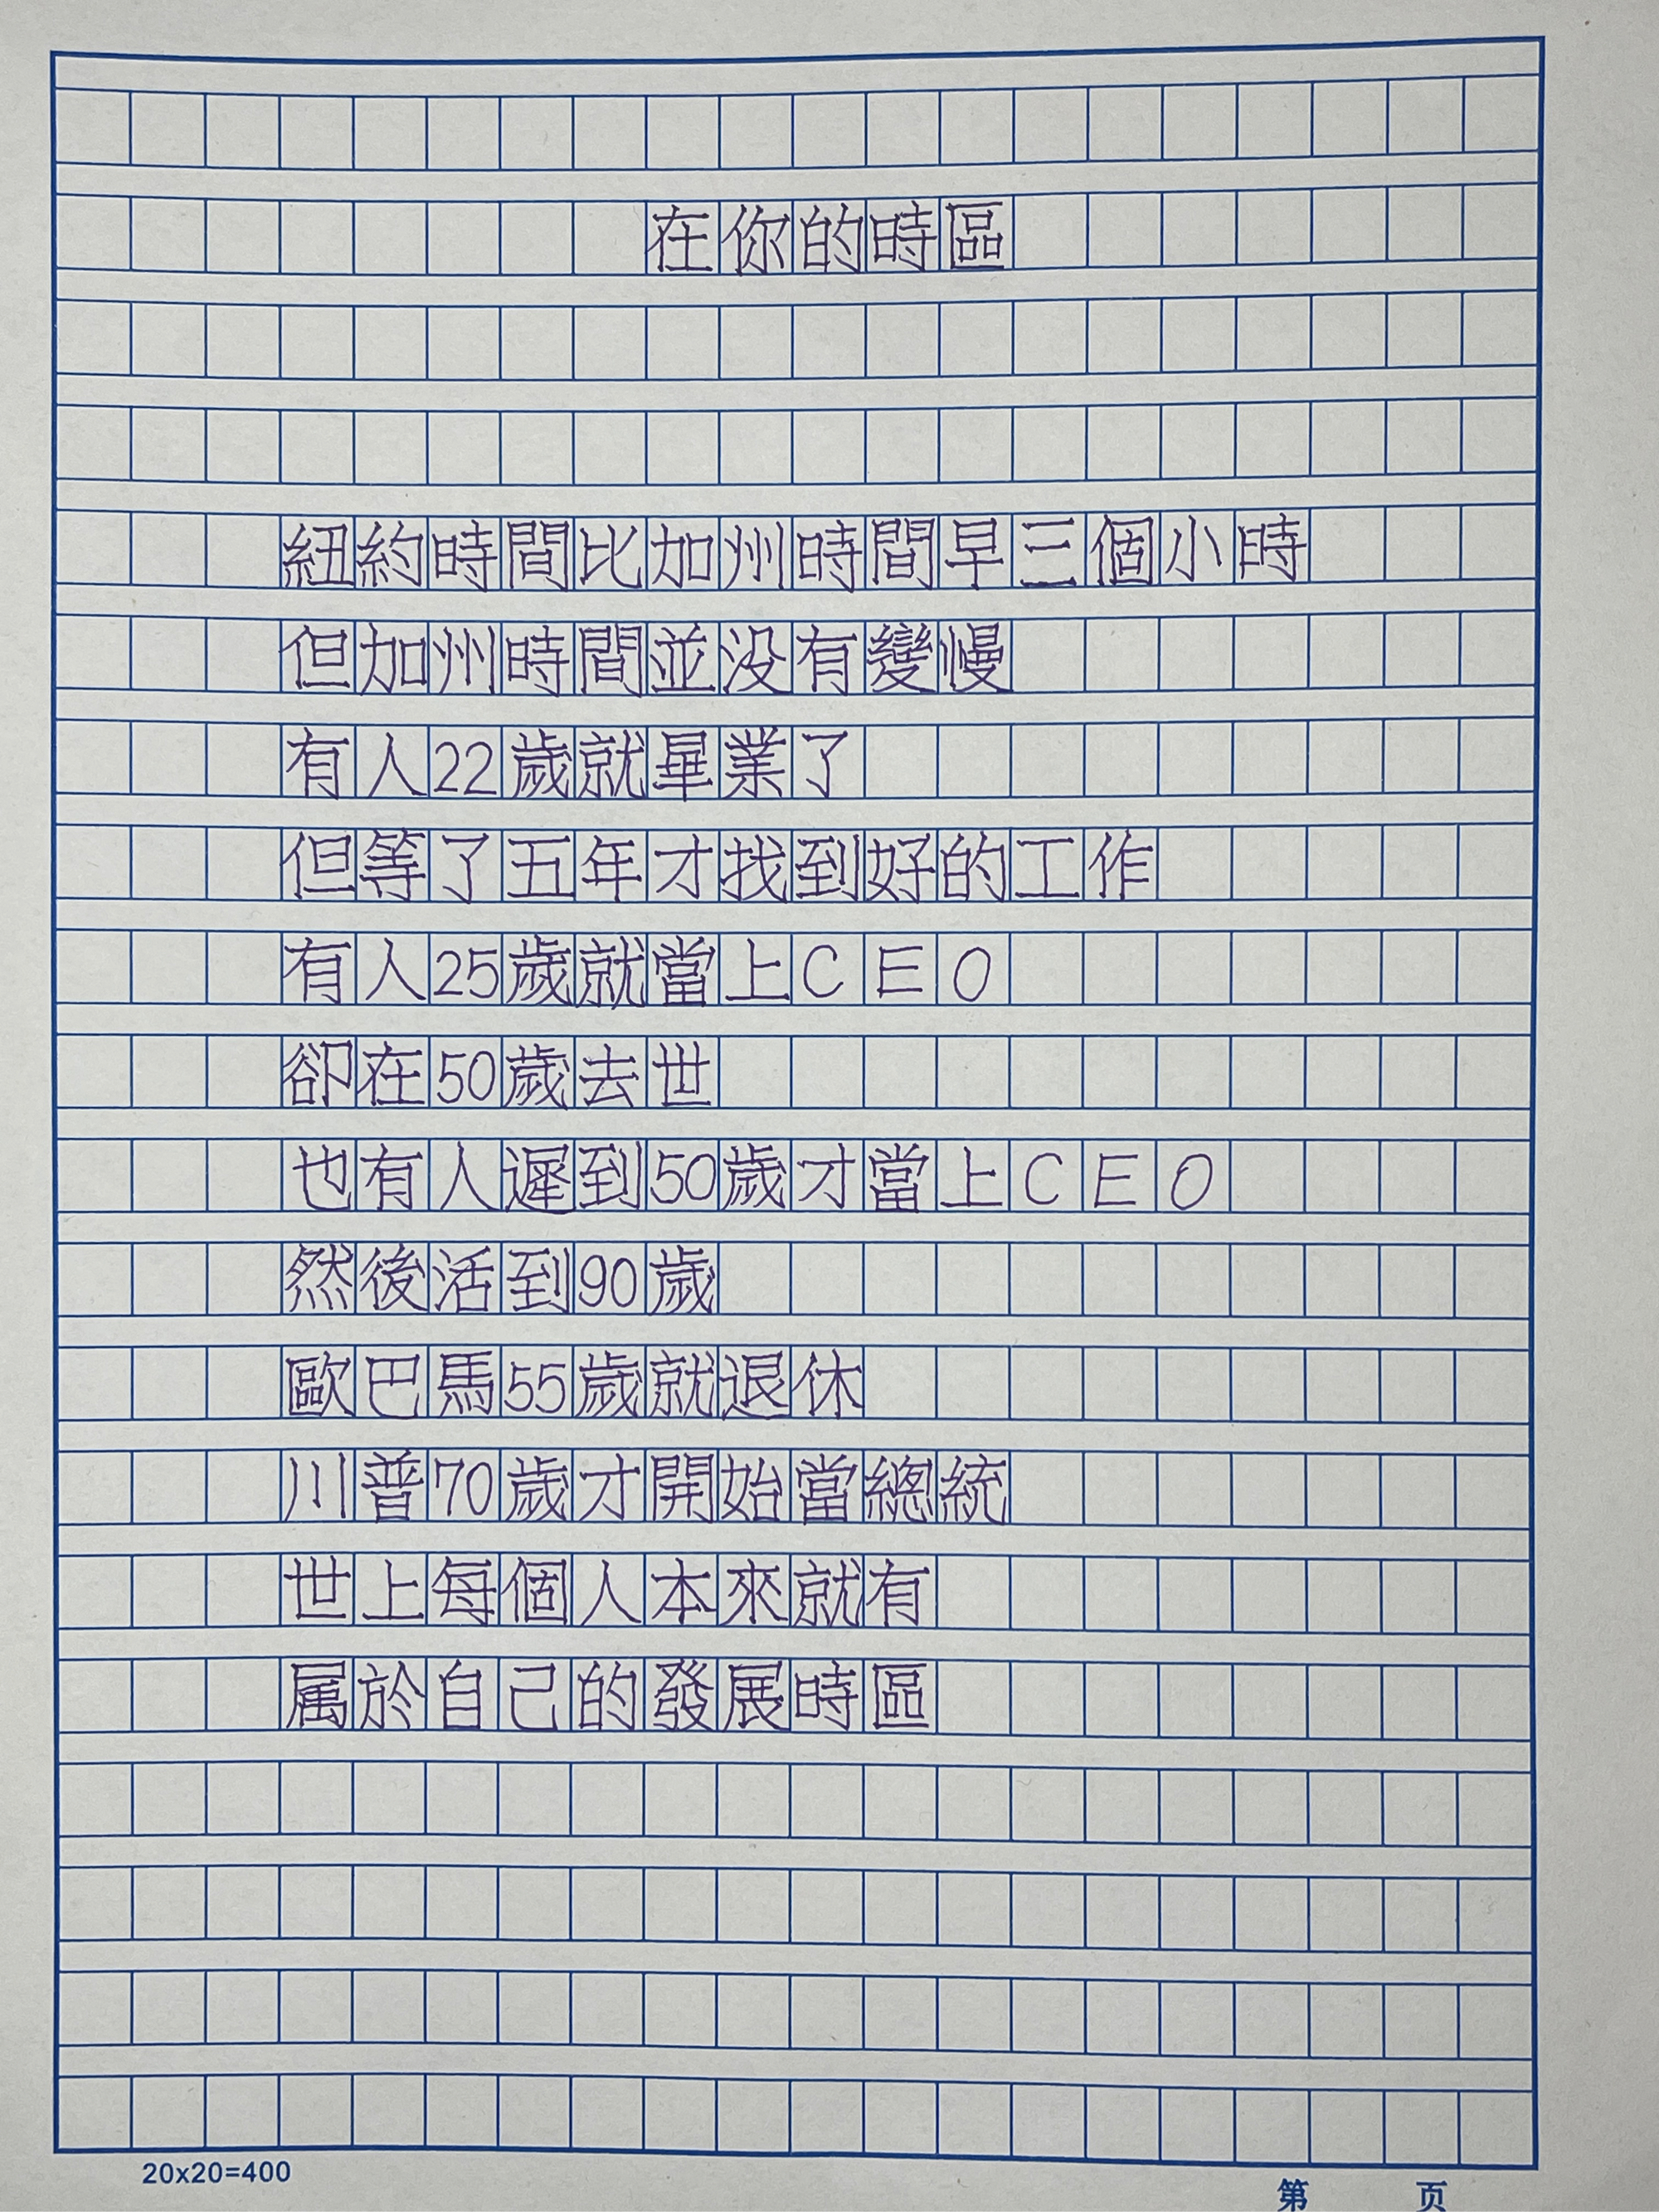 在你的時區
紐約時間比加州時間早三個小時
但加州時間並没有變慢
有人22歲就畢業了
但等了五年才找到好的工作
有人25歲就當上CEO
卻在50歲去世
也有人遲到50歲才當上CEO
然後活到90歲
歐巴馬55歲就退休
川普70歲才開始當總統
世上每個人本來就有
属於自己的發展時區
20x20=400
第 页